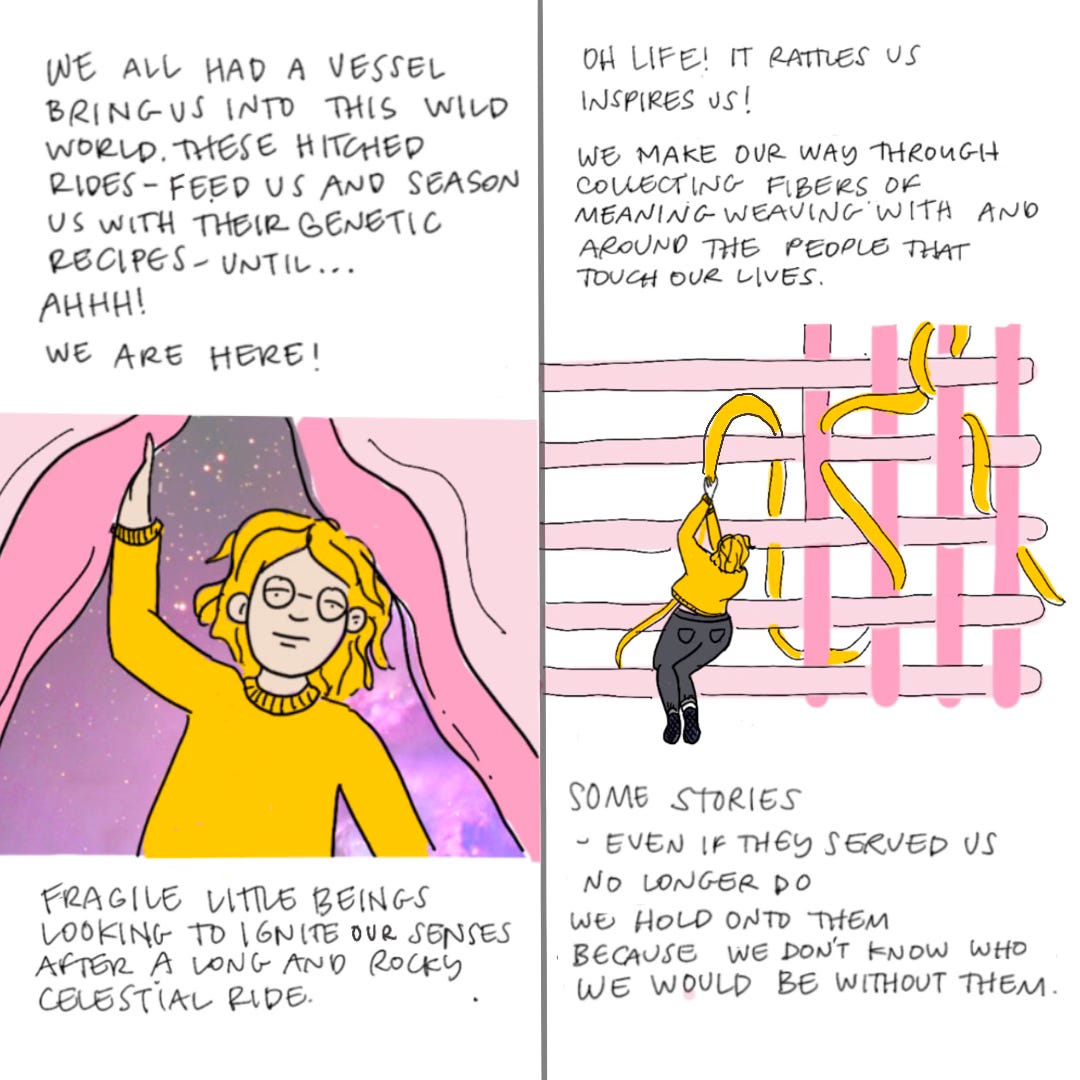 WE ALL HAD A VESSEL
BRING US INTO THIS WILD
WORLD. THESE HITCHED
RIDES - FEED US AND SEASON
US WITH THEIR GENETIC
RECIPES - UNTIL...
AHHH!
WE ARE HERE!
FRAGILE LITTLE BEINGS
LOOKING TO IGNITE OUR SENSES
AFTER A LONG AND ROCKY
CELESTIAL RIDE.
OH LIFE! IT RATTLES US
INSPIRES US!
WE MAKE OUR WAY THROUGH
COLLECTING FIBERS OF
MEANING WEAVING WITH AND
AROUND THE PEOPLE THAT
TOUCH OUR LIVES.
SOME STORIES
- EVEN IF THEY SERVED US
NO LONGER DO
WE HOLD ONTO THEM
BECAUSE WE DON'T KNOW WHO
WE WOULD BE WITHOUT THEM.